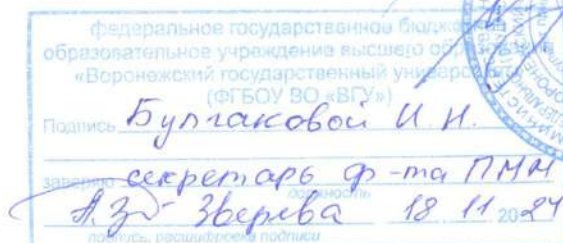 федеральное государственное бюдж
образовательное учреждение высшего образования
«Воронежский государственный университет»
(ФГБОУ ВО «ВГУ»)
Подпись Булгаковой И. Н.
заверяю секретарь ф-та ПММ
должность
Зверева 18 11 2024
подпись, расшифровка подписи